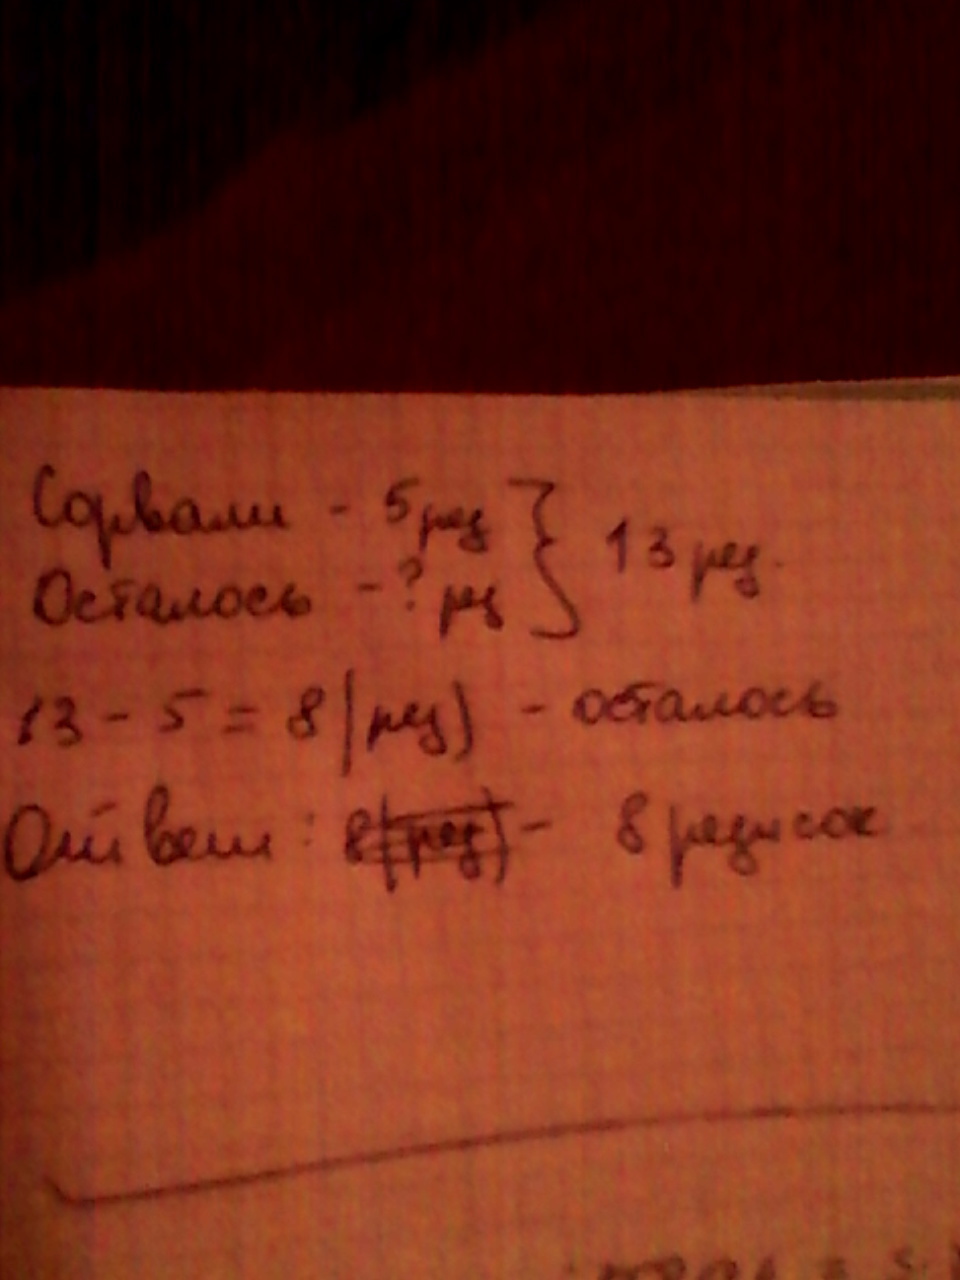 Сорвали - 5 ред } 13 ред.
Осталось - ? ред
13 - 5 = 8 (ред) - осталось
Ответ: 8 (ред) - 8 редисок